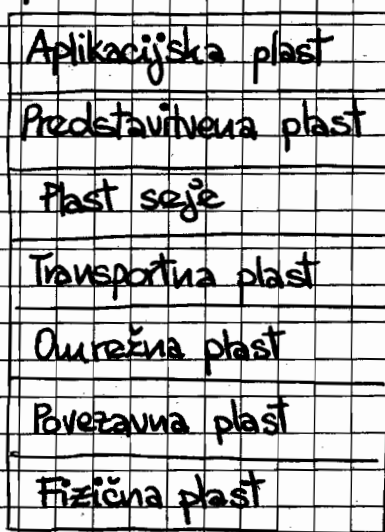 Aplikacijska plast
Predstavitvena plast
Plast seje
Transportna plast
Omrežna plast
Povezavna plast
Fizična plast